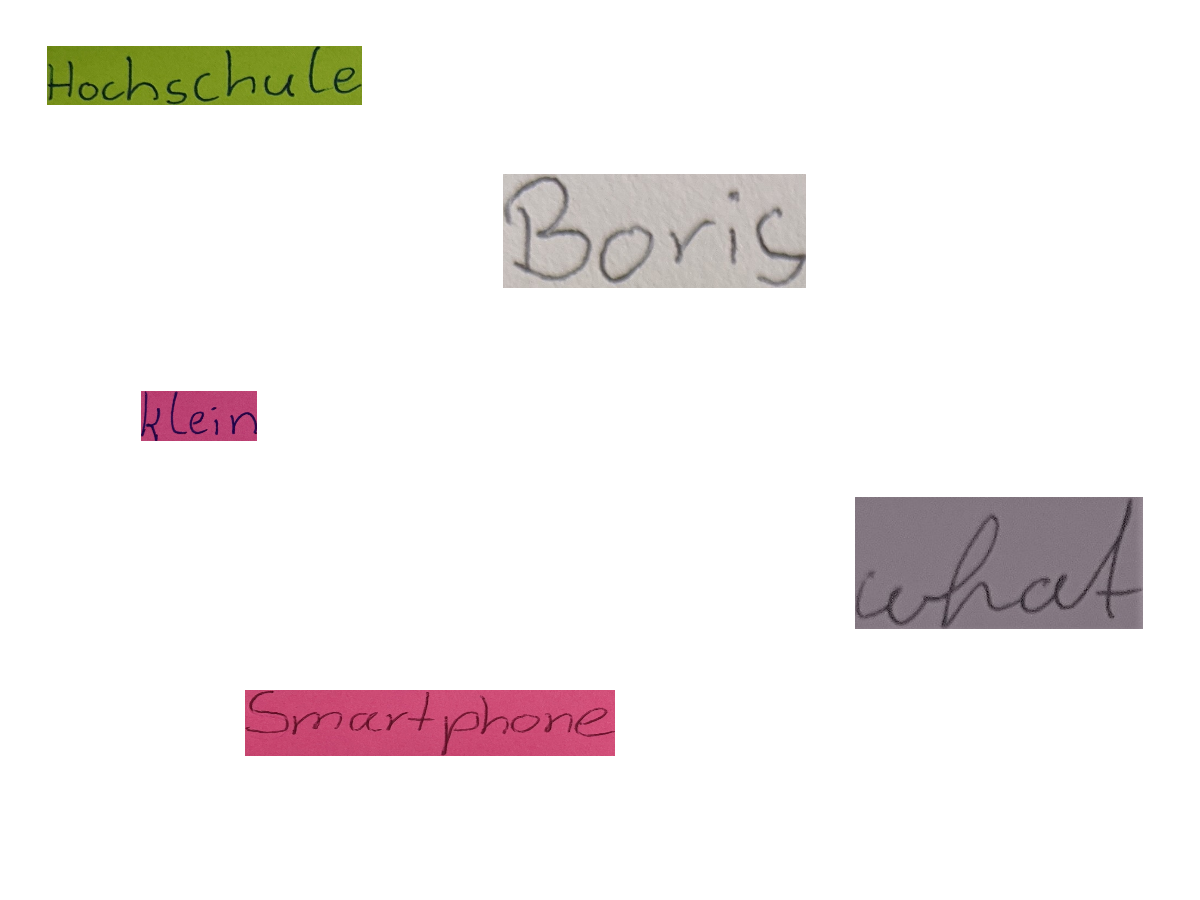 Hochschule
Boris
klein
what
Smartphone